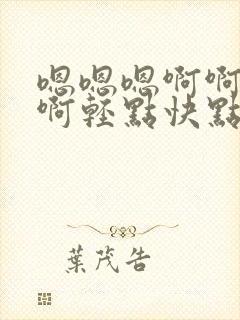 嗯嗯嗯啊啊
啊轻點快點
葉茂告